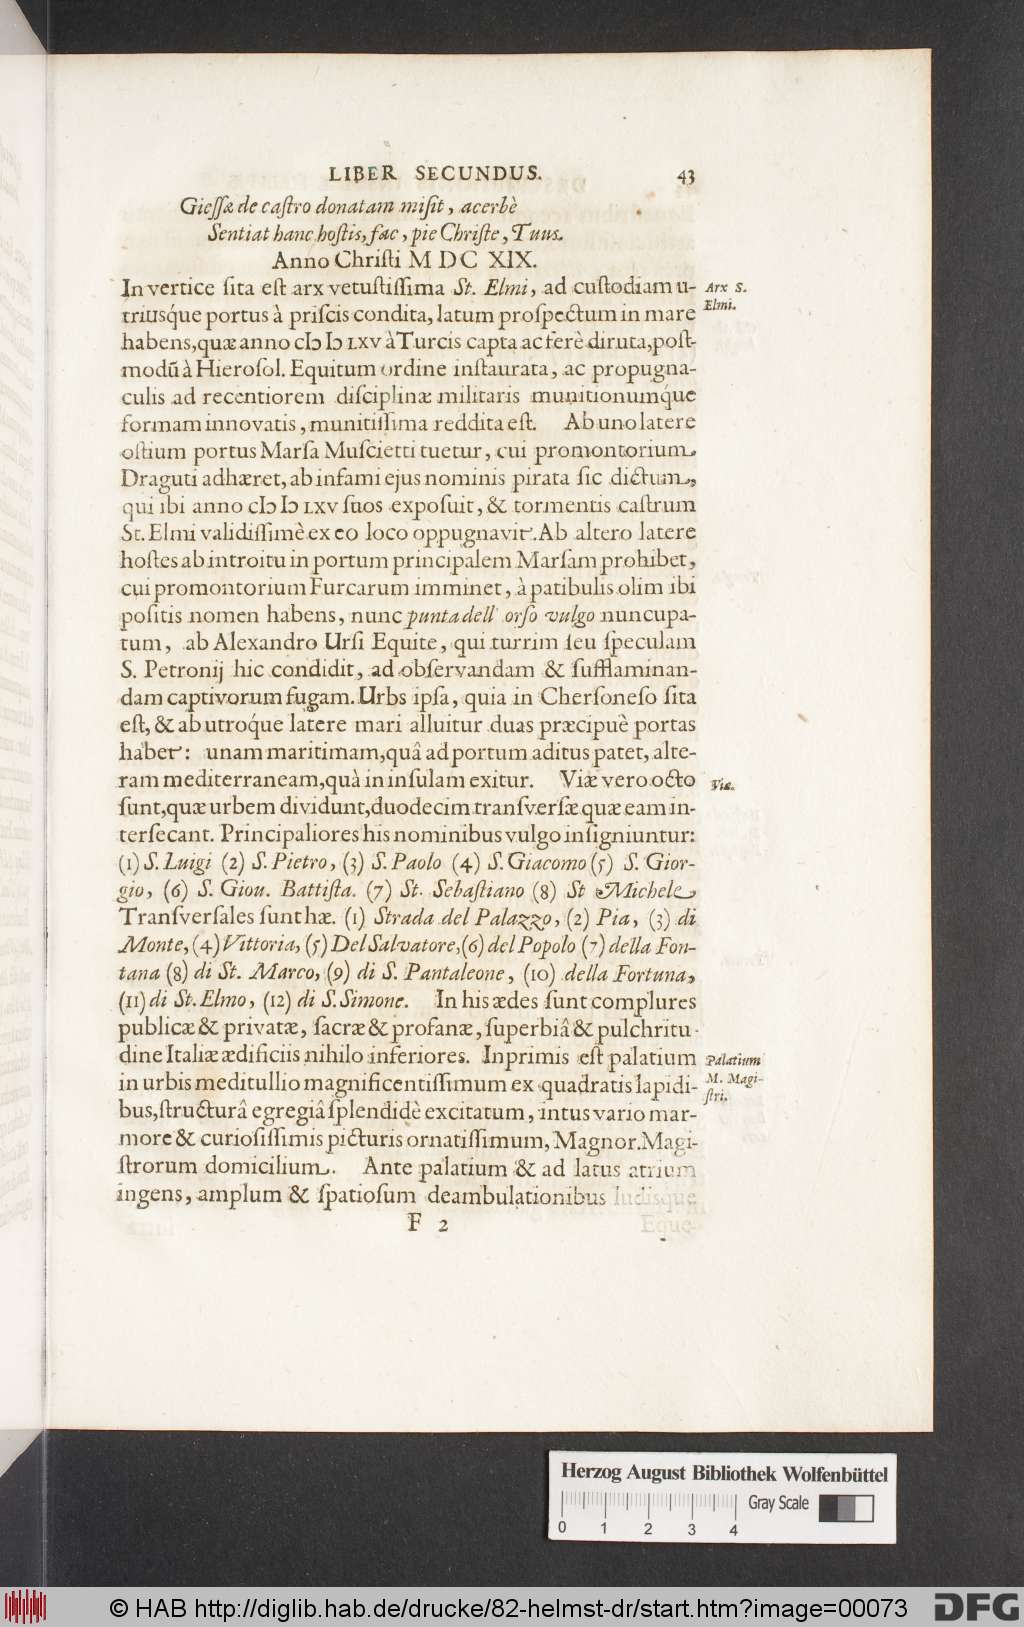 LIBER SECUNDUS. 43
Gieſſæ de caſtro donatam miſit, acerbè
Sentiat hanc hoſtis, fac, pie Chriſte, Tuus.
Anno Chriſti M DC XIX.
In vertice ſita eſt arx vetuſtiſſima St. Elmi, ad cuſtodiam u-
triusq́ue portus à priſcis condita, latum proſpectum in mare
habens, quæ anno cIↄ Iↄ LXV à Turcis capta ac ferè diruta, poſt-
modũ à Hieroſol. Equitum ordine inſtaurata, ac propugna-
culis ad recentiorem diſciplinæ militaris munitionumq́ue
formam innovatis, munitiſſima reddita eſt. Ab uno latere
oſtium portus Marſa Muſcietti tuetur, cui promontorium
Draguti adhæret, ab infami ejus nominis pirata ſic dictum,
qui ibi anno cIↄ Iↄ LXV ſuos expoſuit, & tormentis caſtrum
St. Elmi validiſſimè ex eo loco oppugnavit. Ab altero latere
hoſtes ab introitu in portum principalem Marſam prohibet,
cui promontorium Furcarum imminet, à patibulis olim ibi
poſitis nomen habens, nunc punta dell' orſo vulgo nuncupa-
tum, ab Alexandro Urſi Equite, qui turrim ſeu ſpeculam
S. Petronij hic condidit, ad obſervandam & ſufflaminan-
dam captivorum fugam. Urbs ipſa, quia in Cherſoneſo ſita
eſt, & ab utroq́ue latere mari alluitur duas præcipuè portas
habet: unam maritimam, quâ ad portum aditus patet, alte-
ram mediterraneam, quà in inſulam exitur. Viæ vero octo
ſunt, quæ urbem dividunt, duodecim transverſæ quæ eam in-
terſecant. Principaliores his nominibus vulgo inſigniuntur:
(1) S. Luigi (2) S. Pietro, (3) S. Paolo (4) S. Giacomo (5) S. Gior-
gio, (6) S. Giou. Battiſta. (7) St. Sebaſtiano (8) St Michele
Transverſales ſunt hæ. (1) Strada del Palazzo, (2) Pia, (3) di
Monte, (4) Vittoria, (5) Del Salvatore, (6) del Popolo (7) della Fon-
tana (8) di St. Marco, (9) di S. Pantaleone, (10) della Fortuna,
(11) di St. Elmo, (12) di S. Simone. In his ædes ſunt complures
publicæ & privatæ, ſacræ & profanæ, ſuperbiâ & pulchritu-
dine Italiæ ædificiis nihilo inferiores. Inprimis eſt palatium
in urbis meditullio magnificentiſſimum ex quadratis lapidi-
bus, ſtructurâ egregiâ ſplendidè excitatum, intus vario mar-
more & curioſiſſimis picturis ornatiſſimum, Magnor. Magi-
ſtrorum domicilium. Ante palatium & ad latus atrium
ingens, amplum & ſpatioſum deambulationibus ludisque
F 2 Eque-
Arx S.
Elmi.
Viæ.
Palatium
M. Magi-
ſtri.
Herzog August Bibliothek Wolfenbüttel
Gray Scale
0 1 2 3 4
© HAB http://diglib.hab.de/drucke/82-helmst-dr/start.htm?image=00073
DFG